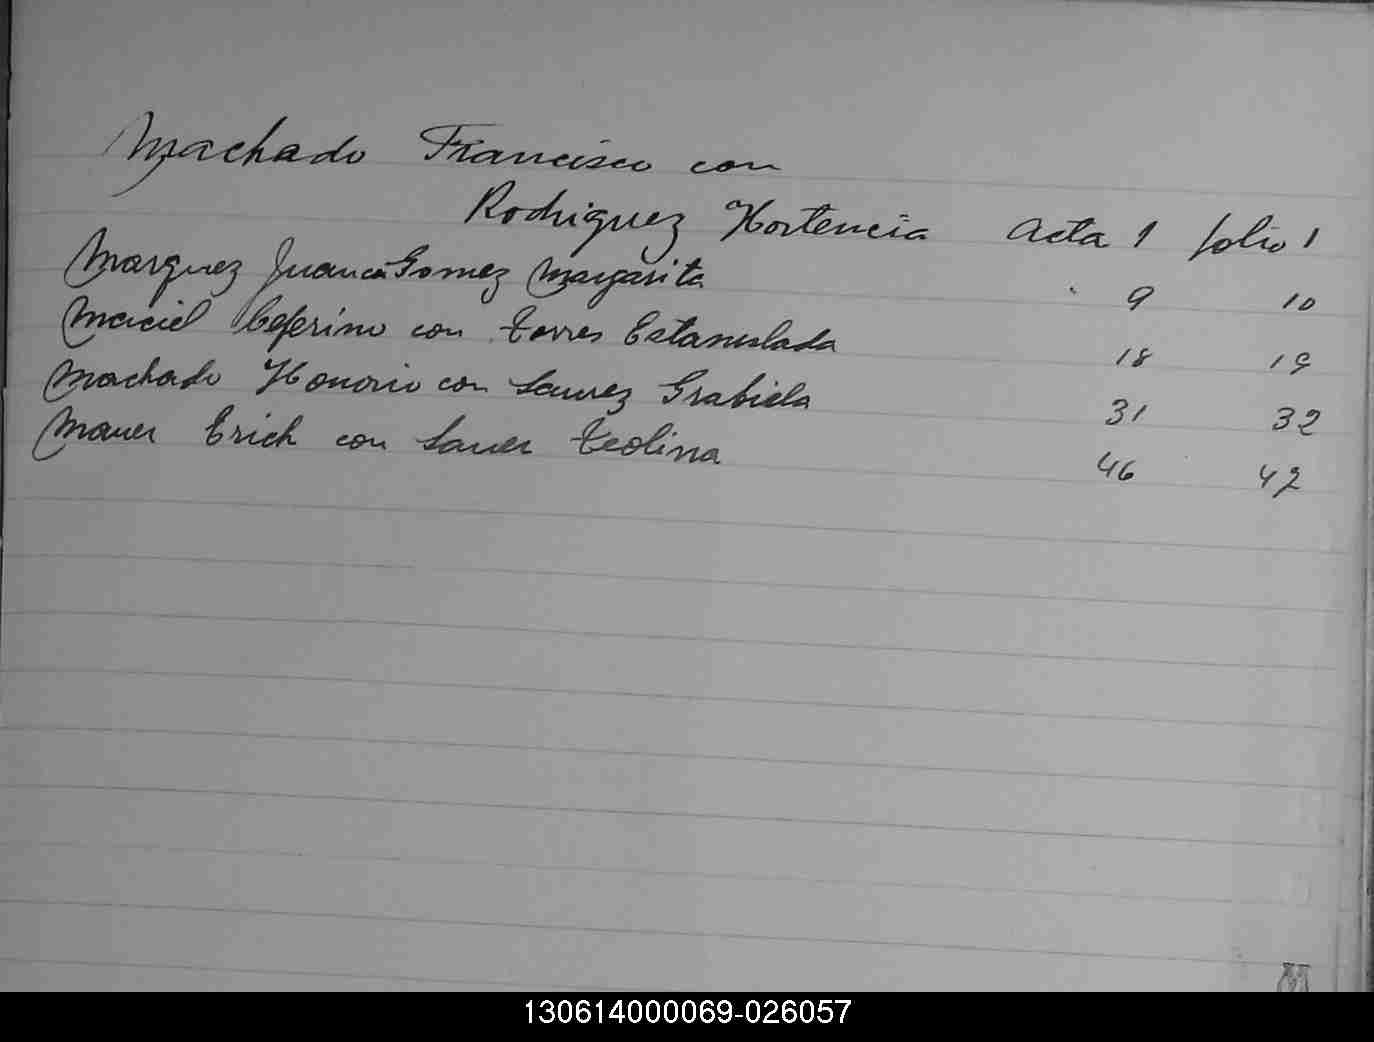 Machado Francisco con
Rodriguez Hortencia acta 1 folio 1
Marquez Juan con Gomez Margarita 9 10
Maciel Ceferino con Torres Estanislada 18 19
Machado Honorio con Saurez Grabiela 31 32
Mauer Erich con Sauer Teolina 46 42
M
130614000069-026057